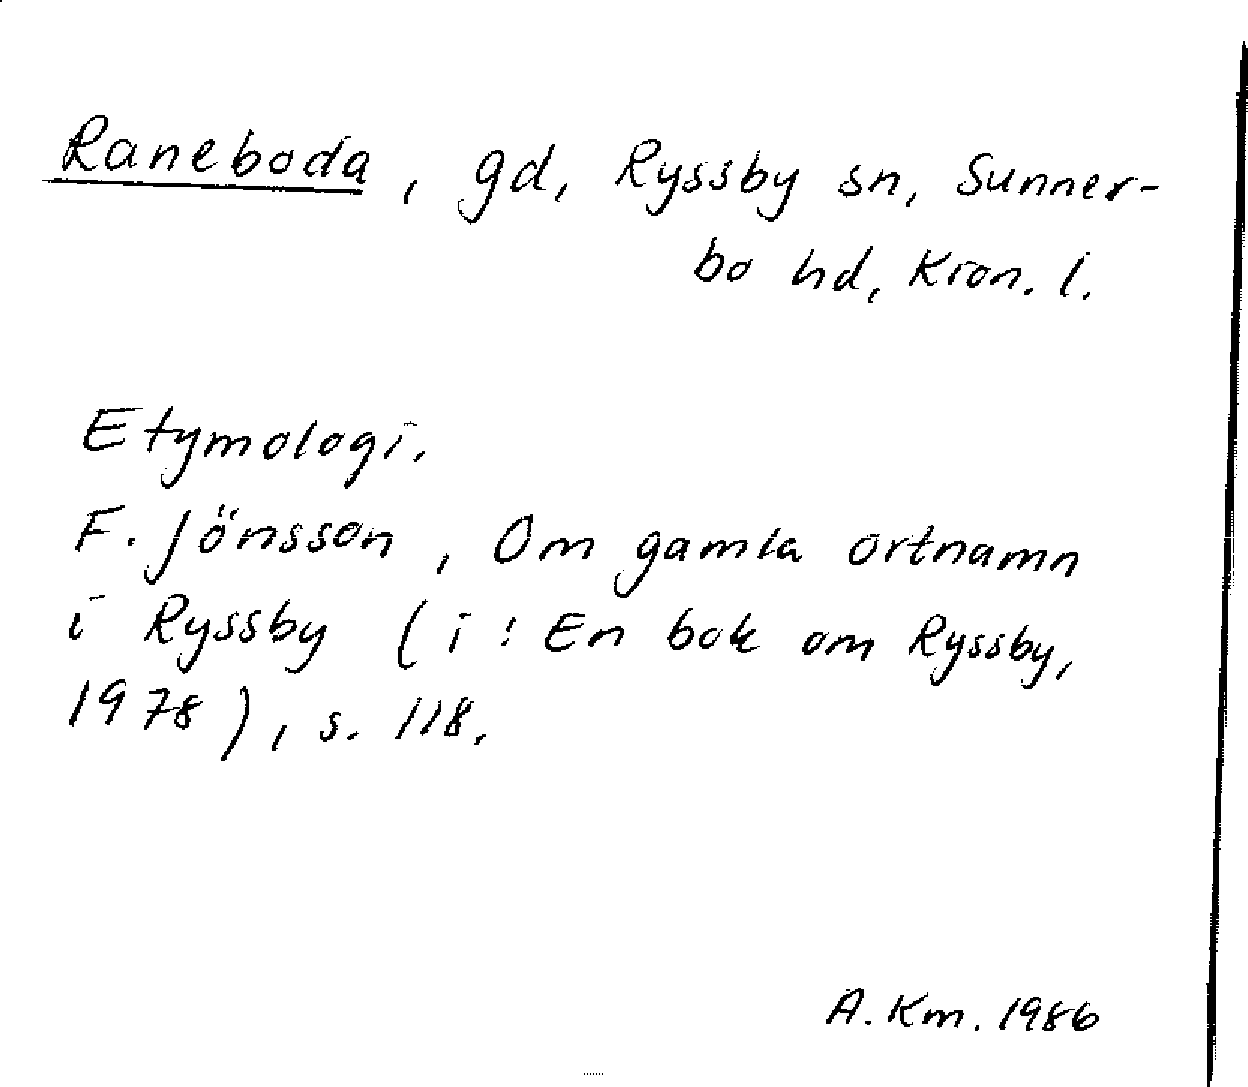 Raneboda, gd, Ryssby sn, Sunner-
bo hd, Kron. l.
Etymologi.
F. Jönsson, Om gamla ortnamn
i Ryssby (i: En bok om Ryssby,
1978), s. 118.
A. Km. 1986